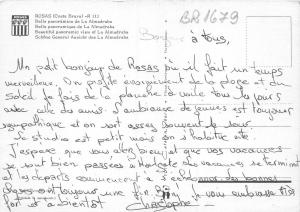 ROSAS (Costa Brava) - R 113
Bella panorámica de La Almadraba
Belle panoramique de La Almadraba
Beautiful panoramic view of La Almadraba
Schöne General Ansicht der La Almadraba
BR1679
Bonjour à tous,
Un petit bonjour de Rosas où il fait un temps
merveilleux. On profite énormément de la plage et du
Soleil. Je fais de la planche à voile tous les jours
avec des amis. L'ambiance de jeunes est toujours
sympathique et on sort assez souvent le soir.
Le studio est petit mais on a
J'espère que vous allez bien et que vos vacances
se sont bien passées à
et les départs commencent à
choses ont toujours une fin. Je vous embrasse
fort et à bientôt
Christophe